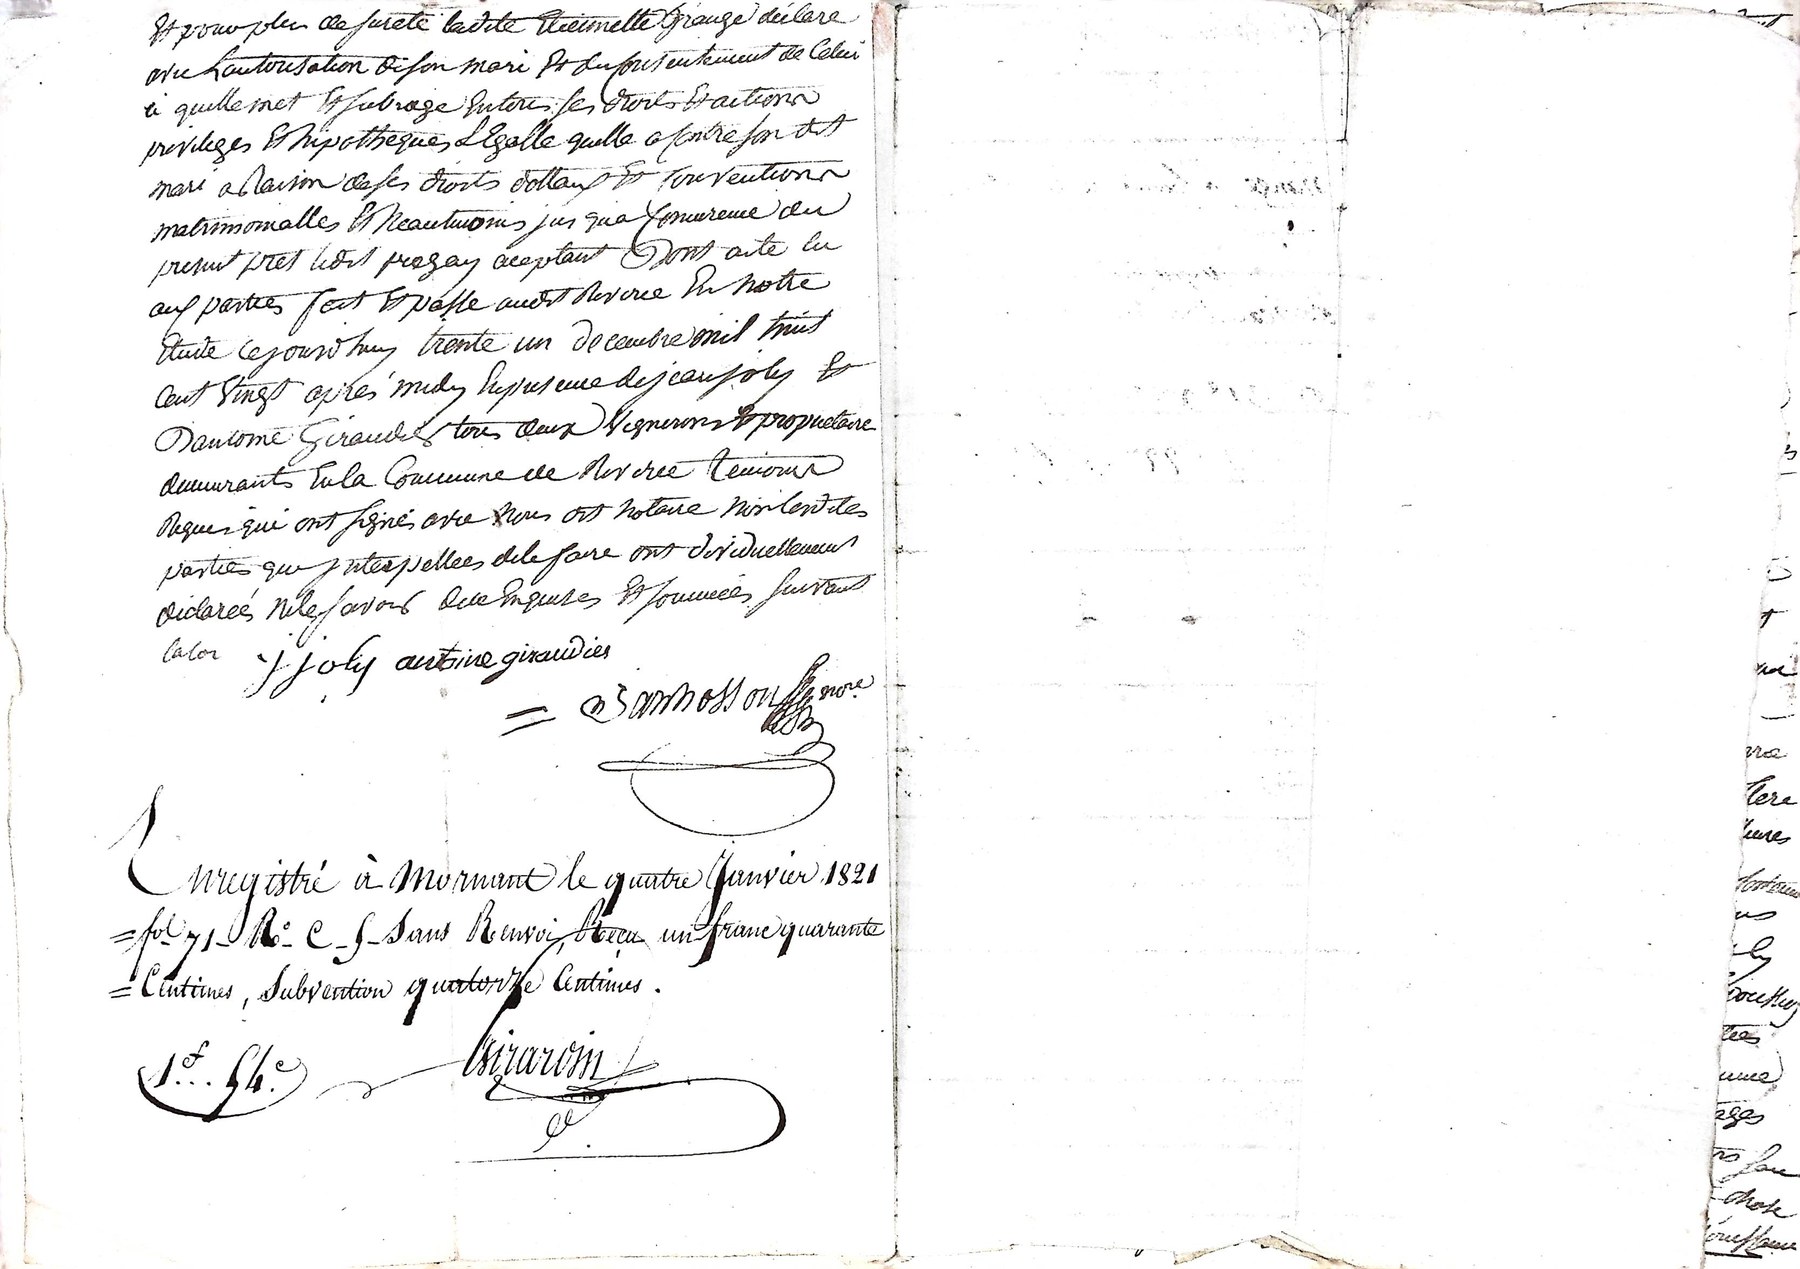 Et pour plus de sureté ladite Etiennette Grange déclare
avec L'autorisation de son mari Et du Consentement de Celui
ci quelle met Et subroge En tous ses droits Et actions
privileges Et hipotheques Légalle quelle a Contre son dit
mari a Raison de ses droits dottaux Et Conventions
matrimonialles Et Neantmoins jus qua Concurence du
present pret ledit aceptant Dont acte lu
aux parties fait Et passé audit Riverie En Notre
Etude Cejourdhuy trente un decembre mil huit
Cent Vingt aprés midy En presence de jean joly Et
D'antoine Giraudier tous deux Vignerons Et proprietaire
demeurants En la Commune de Riverie Temoins
Requis qui ont signés avec Nous dit Notaire Non lesdites
parties que interpellees de le faire ont dividuellement
déclarées Ne le savoir de ce Enquises Et sommées suivant
la loi
j joly antoine giraudier
nore
Enregistré à Mornant le quatre Janvier 1821
= fol 71 Ro C 5 Sans Renvoi, Reçu un franc quarante
= Centimes, Subvention quatorze Centimes.
1f... 54c.
tere
ages